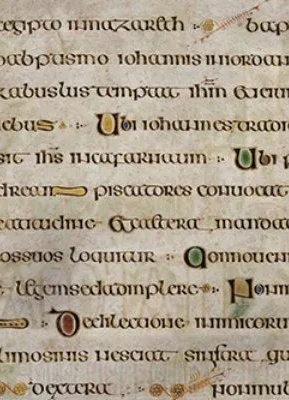 aegipto in nazareth bap
baptismo iohannis in iordan
zabulus temptat ihm et eiun
ebus Ubi iohannes tradi
sit ihs in cafarnaum Ubi p
dream piscatores conuocat
eatitudine et cetera mandat
ossuos loquitur Quonnouenit
legem sed adimplere hom
De dilectione inimicorum
limosinis nesciat sinistra
dextera hominib